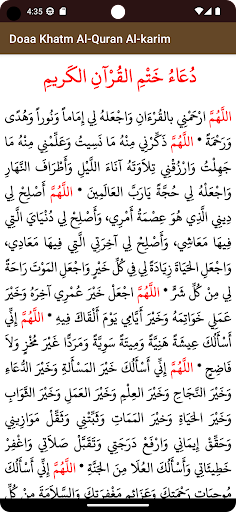 4:35
Doaa Khatm Al-Quran Al-karim
دُعَاءُ خَتْمِ القُرْآنِ الكَرِيمِ
اللَّهُمَّ ارْحَمْنِي بالقُرْءَانِ وَاجْعَلهُ لِي إِمَاماً وَنُوراً وَهُدًى
وَرَحْمَةً * اللَّهُمَّ ذَكِّرْنِي مِنْهُ مَا نَسِيتُ وَعَلِّمْنِي مِنْهُ مَا
جَهِلْتُ وَارْزُقْنِي تِلاَوَتَهُ آنَاءَ اللَّيْلِ وَأَطْرَافَ النَّهَارِ
وَاجْعَلْهُ لِي حُجَّةً يَارَبَّ العَالَمِينَ * اللَّهُمَّ أَصْلِحْ لِي
دِينِي الَّذِي هُوَ عِصْمَةُ أَمْرِي، وَأَصْلِحْ لِي دُنْيَايَ الَّتِي
فِيهَا مَعَاشِي، وَأَصْلِحْ لِي آخِرَتِي الَّتِي فِيهَا مَعَادِي،
وَاجْعَلِ الحَيَاةَ زِيَادَةً لِي فِي كُلِّ خَيْرٍ وَاجْعَلِ المَوْتَ رَاحَةً
لِي مِنْ كُلِّ شَرٍّ * اللَّهُمَّ اجْعَلْ خَيْرَ عُمْرِي آخِرَهُ وَخَيْرَ
عَمَلِي خَوَاتِمَهُ وَخَيْرَ أَيَّامِي يَوْمَ أَلْقَاكَ فِيهِ * اللَّهُمَّ إِنِّي
أَسْأَلُكَ عِيشَةً هَنِيَّةً وَمِيتَةً سَوِيَّةً وَمَرَدًّا غَيْرَ مُخْزٍ وَلاَ
فَاضِحٍ * اللَّهُمَّ إِنِّي أَسْأَلُكَ خَيْرَ المَسْأَلةِ وَخَيْرَ الدُّعَاءِ
وَخَيْرَ النَّجَاحِ وَخَيْرَ العِلْمِ وَخَيْرَ العَمَلِ وَخَيْرَ الثَّوَابِ
وَخَيْرَ الحَيَاةِ وَخيرَ المَمَاتِ وَثَبِّتْنِي وَثَقِّلْ مَوَازِينِي
وَحَقِّقْ إِيمَانِي وَارْفَعْ دَرَجَتِي وَتَقَبَّلْ صَلاَتِي وَاغْفِرْ
خَطِيئَاتِي وَأَسْأَلُكَ العُلَا مِنَ الجَنَّةِ * اللَّهُمَّ إِنِّي أَسْأَلُكَ
مُوجِبَاتِ رَحْمَتِكَ وَعَزَائِمِ مَغْفِرَتِكَ وَالسَّلاَمَةَ مِنْ كُلِّ